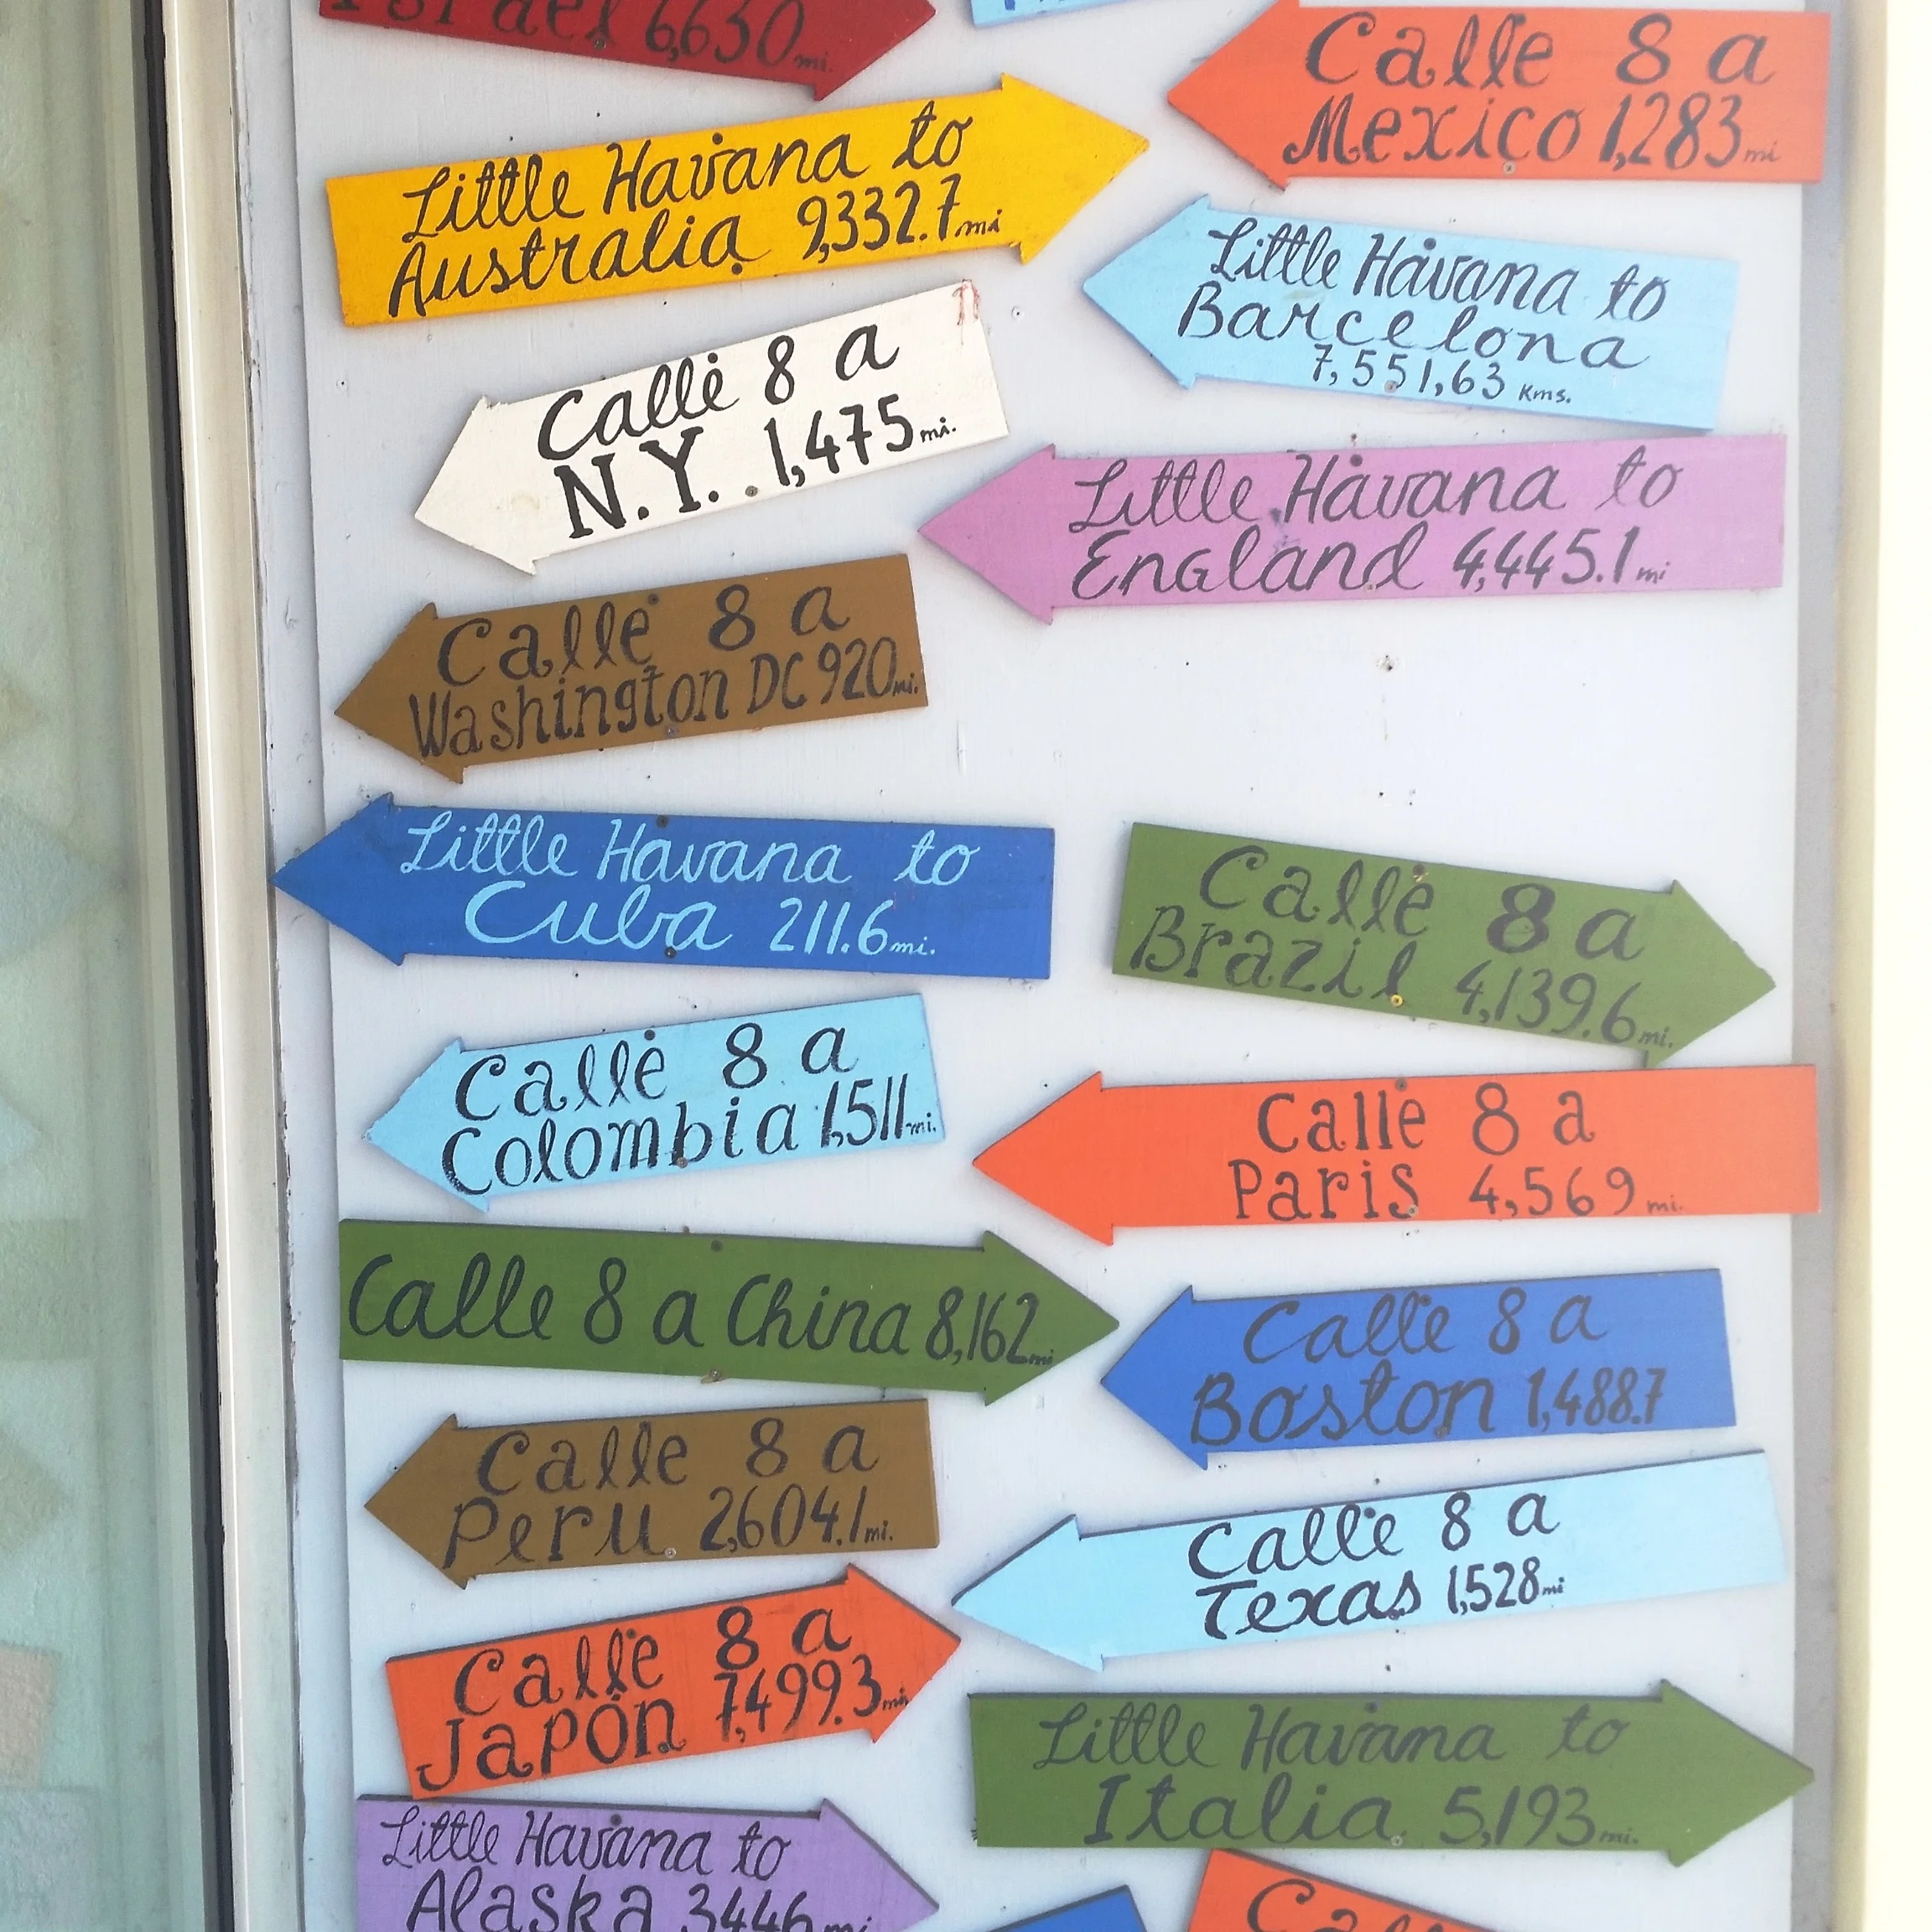 Israel 6,630 mi.
Calle 8 a
Mexico 1,283 mi
Little Havana to
Australia 9,332.7 mi
Little Havana to
Barcelona
7,551,63 Kms.
Calle 8 a
N.Y. 1,475 mi.
Little Havana to
England 4,445.1 mi
Calle 8 a
Washington DC 920 mi.
Little Havana to
Cuba 211.6 mi.
Calle 8 a
Brazil 4,139.6 mi.
Calle 8 a
Colombia 1,511 mi.
Calle 8 a
Paris 4,569 mi.
Calle 8 a China 8,162 mi
Calle 8 a
Boston 1,488.7
Calle 8 a
Peru 2,604.1 mi.
Calle 8 a
Texas 1,528 mi
Calle 8 a
Japón 7,499.3 mi
Little Havana to
Italia 5,193 mi.
Little Havana to
Alaska 3446 mi